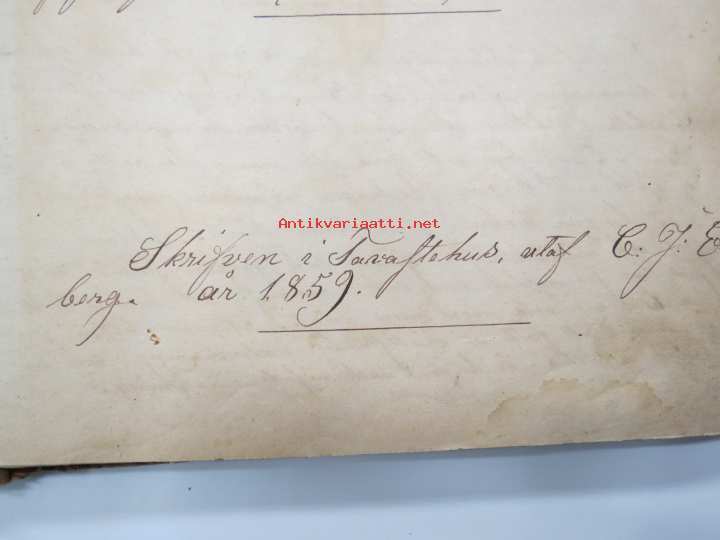 Antikvariaatti.net
Skrifven i Tavastehus, utaf C: J: E
berg. år 1859.